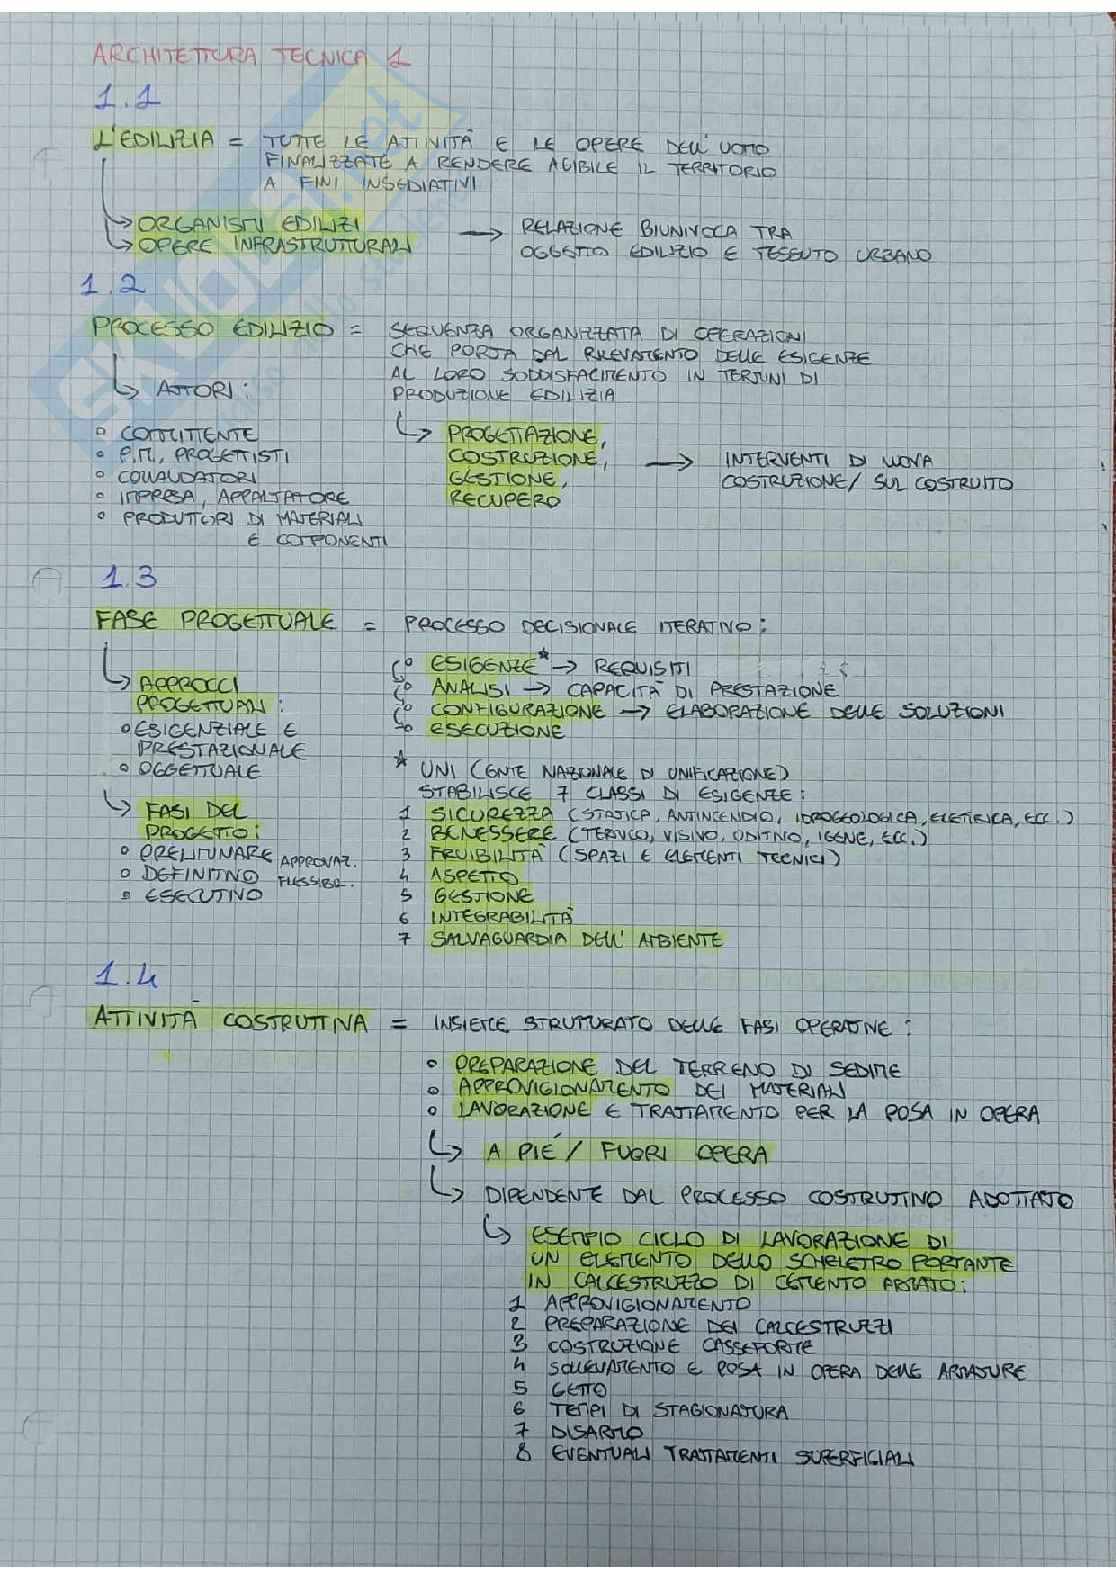 ARCHITETTURA TECNICA 1
1.1
L'EDILIZIA = TUTTE LE ATTIVITÀ E LE OPERE DELL'UOMO
FINALIZZATE A RENDERE AGIBILE IL TERRITORIO
A FINI INSEDIATIVI
ORGANISMI EDILIZI
OPERE INFRASTRUTTURALI
→ RELAZIONE BIUNIVOCA TRA
OGGETTO EDILIZIO E TESSUTO URBANO
1.2
PROCESSO EDILIZIO = SEQUENZA ORGANIZZATA DI OPERAZIONI
CHE PORTA DAL RILEVAMENTO DELLE ESIGENZE
AL LORO SODDISFACIMENTO IN TERMINI DI
PRODUZIONE EDILIZIA
ATTORI:
• COMMITTENTE
• P.M., PROGETTISTI
• COLLAUDATORI
• IMPRESA, APPALTATORE
• PRODUTTORI DI MATERIALI
E COMPONENTI
PROGETTAZIONE,
COSTRUZIONE,
GESTIONE,
RECUPERO
→ INTERVENTI DI NUOVA
COSTRUZIONE / SUL COSTRUITO
1.3
FASE PROGETTUALE = PROCESSO DECISIONALE ITERATIVO:
• ESIGENZE* → REQUISITI
• ANALISI → CAPACITÀ DI PRESTAZIONE
• CONFIGURAZIONE → ELABORAZIONE DELLE SOLUZIONI
• ESECUZIONE
APPROCCI
PROGETTUALI:
• ESIGENZIALE E
PRESTAZIONALE
• OGGETTUALE
FASI DEL
PROGETTO:
• PRELIMINARE APPROVAZ.
• DEFINITIVO FLESSIBIL.
• ESECUTIVO
* UNI (ENTE NAZIONALE DI UNIFICAZIONE)
STABILISCE 7 CLASSI DI ESIGENZE:
1 SICUREZZA (STATICA, ANTINCENDIO, IDROGEOLOGICA, ELETTRICA, ECC.)
2 BENESSERE (TERMICO, VISIVO, UDITIVO, IGENE, ECC.)
3 FRUIBILITÀ (SPAZI E ELEMENTI TECNICI)
4 ASPETTO
5 GESTIONE
6 INTEGRABILITÀ
7 SALVAGUARDIA DELL'AMBIENTE
1.4
ATTIVITÀ COSTRUTTIVA = INSIEME STRUTTURATO DELLE FASI OPERATIVE:
• PREPARAZIONE DEL TERRENO DI SEDIME
• APPROVIGIONAMENTO DEI MATERIALI
• LAVORAZIONE E TRATTAMENTO PER LA POSA IN OPERA
A PIÉ / FUORI OPERA
DIPENDENTE DAL PROCESSO COSTRUTTIVO ADOTTATO
ESEMPIO CICLO DI LAVORAZIONE DI
UN ELEMENTO DELLO SCHELETRO PORTANTE
IN CALCESTRUZZO DI CEMENTO ARMATO:
1 APPROVIGIONAMENTO
2 PREPARAZIONE DEI CALCESTRUZZI
3 COSTRUZIONE CASSEFORME
4 SOLLEVAMENTO E POSA IN OPERA DELLE ARMATURE
5 GETTO
6 TEMPI DI STAGIONATURA
7 DISARMO
8 EVENTUALI TRATTAMENTI SUPERFICIALI